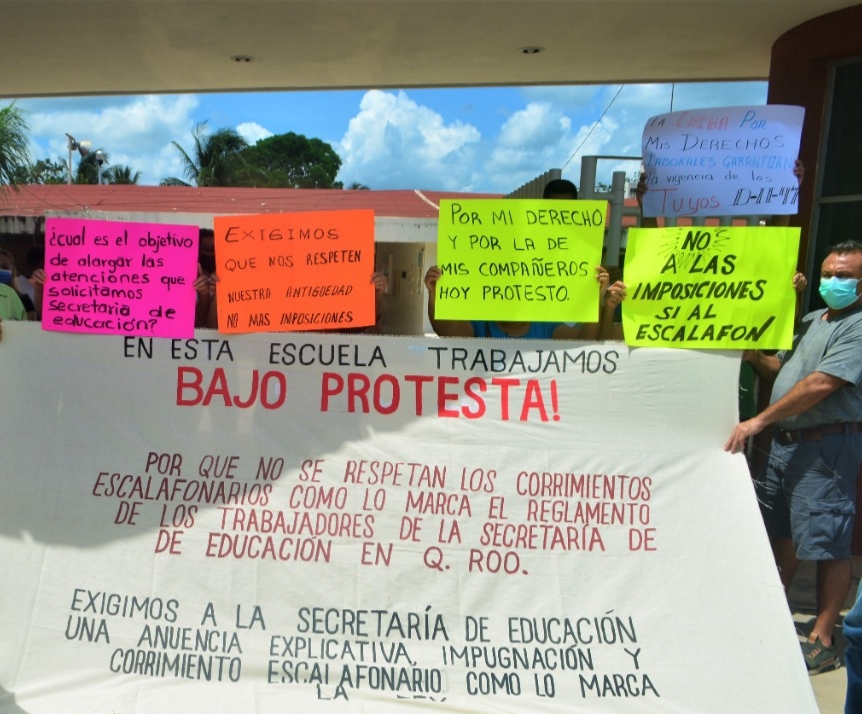 LA LUCHA POR
MIS DERECHOS
LABORALES GARANTIZAN
la vigencia de los
TUYOS D-II-47
¿cual es el objetivo
de alargar las
atenciones que
solicitamos
secretaria de
educación?
EXIGIMOS
QUE NOS RESPETEN
NUESTRA ANTIGUEDAD
NO MAS IMPOSICIONES
POR MI DERECHO
Y POR LA DE
MIS COMPAÑEROS
HOY PROTESTO.
NO
A LAS
IMPOSICIONES
SI AL
ESCALAFON
EN ESTA ESCUELA TRABAJAMOS
BAJO PROTESTA!
POR QUE NO SE RESPETAN LOS CORRIMIENTOS
ESCALAFONARIOS COMO LO MARCA EL REGLAMENTO
DE LOS TRABAJADORES DE LA SECRETARÍA DE
DE EDUCACIÓN EN Q. ROO.
EXIGIMOS A LA SECRETARÍA DE EDUCACIÓN
UNA ANUENCIA EXPLICATIVA, IMPUGNACIÓN Y
CORRIMIENTO ESCALAFONARIO COMO LO MARCA
LA